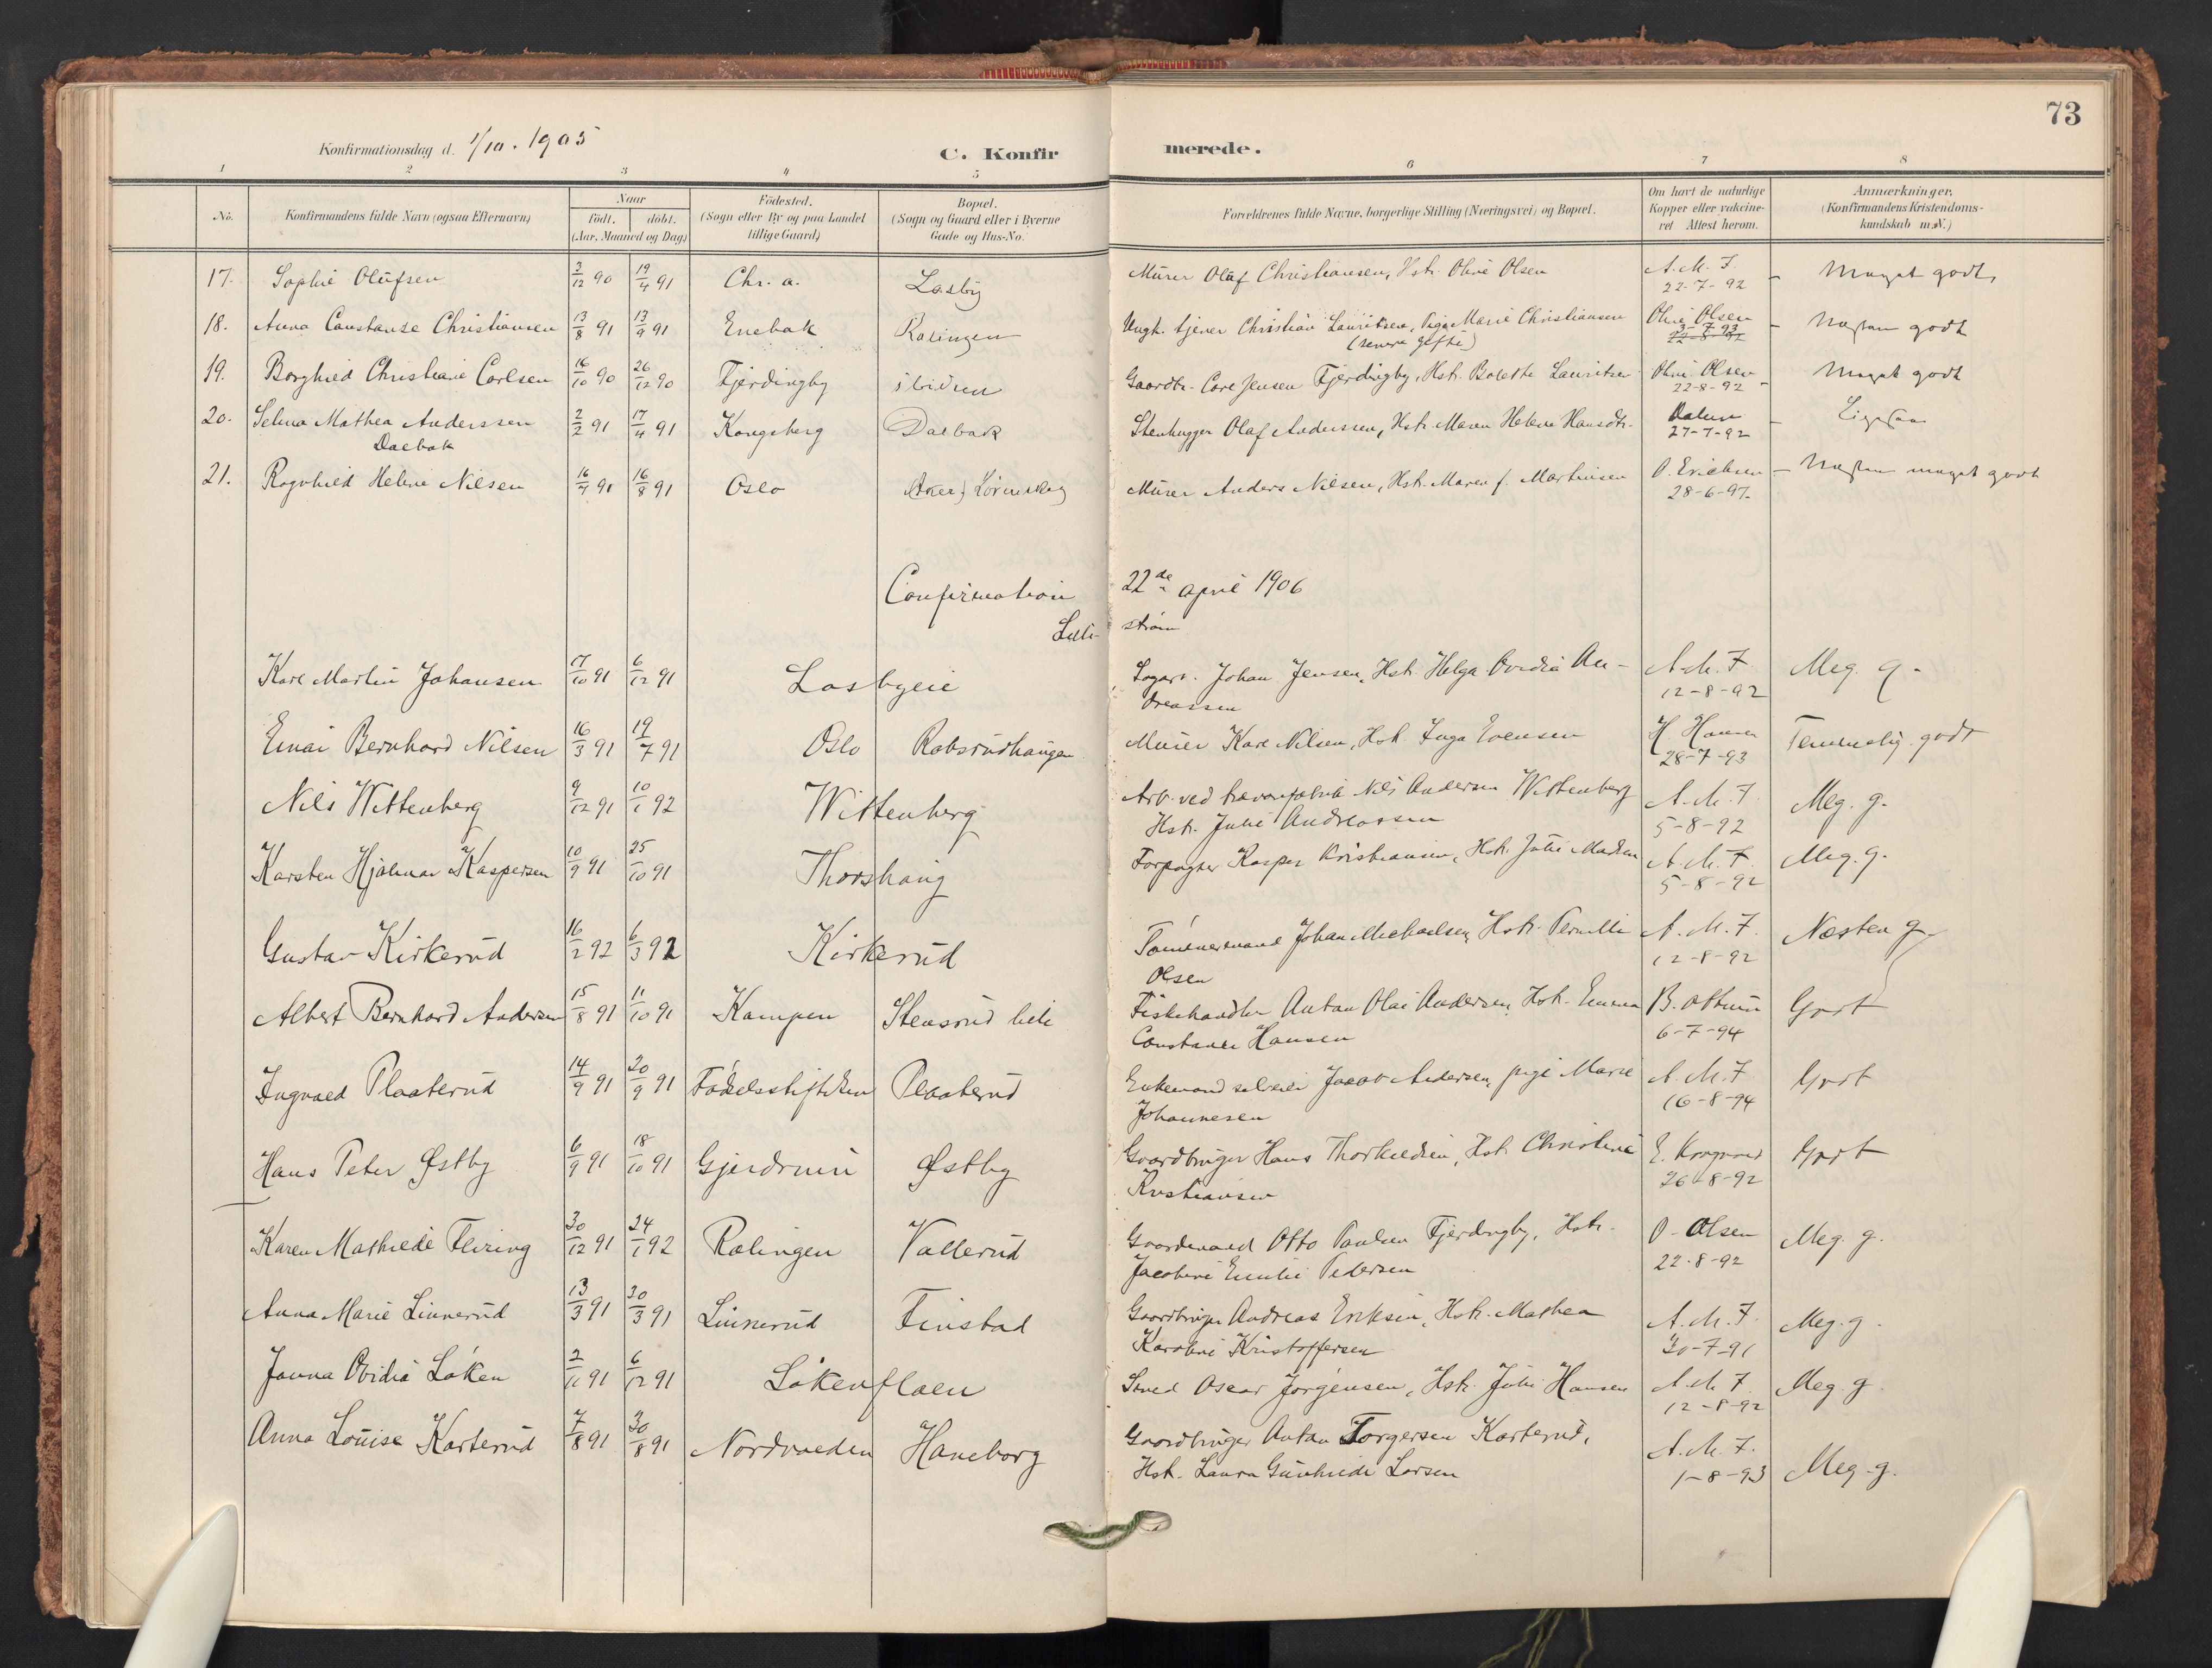 73
Konfirmationsdag d. 1/10. 1905
C. Konfirmerede.
1 2 3 4 5 6 7 8
No. Konfirmandens fulde Navn (ogsaa Efternavn) Naar födt. döbt. (Aar, Maaned og Dag) Födested. (Sogn eller By og paa Landet tillige Gaard) Bopæl. (Sogn og Gaard eller i Byerne Gade og Hus-No. Forældrenes fulde Navne, borgerlige Stilling (Næringsvei) og Bopæl. Om havt de naturlige Kopper eller vaccineret Attest herom. Anmærkninger. (Konfirmandens Kristendomskundskab m.V.)
17. Sophie Olufsen 3/12 90 19/4 91 Chr. a. Losby Murer Oluf Christiansen, Hstr. Oline Olsen A. M. F. 22-7-92 - Meget godt,
18. Anna Constanse Christiansen 13/8 91 13/9 91 Enebak Rælingen Ungk. tjener Christian Lauritsen, Pige Marie Christiansen (senere gifte) Oline Olsen 3-7-93 22-8-92 - Næsten godt
19. Borghild Christiane Carlsen 16/10 90 26/12 90 Fjerdingby ibidem Gaardbr. Carl Jensen Fjerdingby, Hstr. Bolette Lauritsen Oline Olsen 22-8-92 - Meget godt
20. Selma Mathea Anderssen 2/2 91 17/4 91 Kongsberg Dalbak Stenhugger Olaf Anderssen, Hstr. Maren Helene Hansdtr. Dalen 27-7-92 - Ligesaa
Dalbak
21. Ragnhild Helene Nilsen 16/4 91 16/8 91 Oslo Lørenskog Murer Anders Nilsen, Hstr. Maren f. Martinsen O. Erichsen 28-6-97 - Næsten meget godt
Confirmation 22de april 1906
Lillestrøm
Karl Martin Johansen 17/10 91 6/12 91 Losbyeie Sagarb. Johan Jensen, Hstr. Helga Ovidia Andreassen A. M. F. 12-8-92 Meg. g.
Einar Bernhard Nilsen 16/3 91 19/7 91 Oslo Robsrudhaugen Murer Karl Nilsen, Hstr Inga Evensen H. Hansen 28-7-93 Temmelig godt
Nils Wittenberg 9/12 91 10/1 92 Wittenberg Arb. ved trævarefabrik Nils Andersen Wittenberg Hstr. Julie Andreassen A. M. F. 5-8-92 Meg. g.
Karsten Hjalmar Kaspersen 10/9 91 25/10 91 Thorshaug Forpagter Kasper Kristiansen, Hstr. Julie Madsen A. M. F. 5-8-92 Meg. g.
Gustav Kirkerud 16/2 92 6/3 92 Kirkerud Tømmermand Johan Michaelsen, Hstr. Pernille Olsen A. M. F. 12-8-92 Næsten g.
Albert Bernhard Andersen 15/8 91 11/10 91 Kampen Stensrud lille Fiskehandler Anton Olai Andersen, Hstr. Emma Constance Hansen 6-7-94 Godt
Ingvald Plaaterud 14/9 91 20/9 91 Fødselsstiftelsen Plaaterud Enkemand selveier Jacob Andersen, pige Marie Johannesen A. M. F 16-8-94 Godt
Hans Peter Østby 6/9 91 18/10 91 Gjerdrum Østby Gaardbruger Hans Thorkildsen, Hstr. Christine Kristiansen 26-8-92 Godt
Karen Mathilde Flizing 30/12 91 24/1 92 Rælingen Vallerud Gaardmand Otto Paulsen Fjerdingby, Hstr. Jacobine Emilie Pedersen O. Olsen 22-8-92 Meg. g.
Anna Marie Linnerud 13/3 91 30/3 91 Linnerud Finstad Gaardbruger Andreas Eriksen, Hstr. Mathea Karoline Kristoffersen A. M. F. 30-7-91 Meg. g.
Janna Ovidia Løken 2/11 91 6/12 91 Løkenflaen Smed Oscar Jørgensen, Hstr. Julie Hansen A. M. F. 12-8-92 Meg. g.
Anna Louise Karterud 7/8 91 30/8 91 Nordvaeden Haneborg Gaardbruger Anton Torgersen Karterud, Hstr. Laura Gunhilde Larsen A. M. F. 1-8-93 Meg. g.